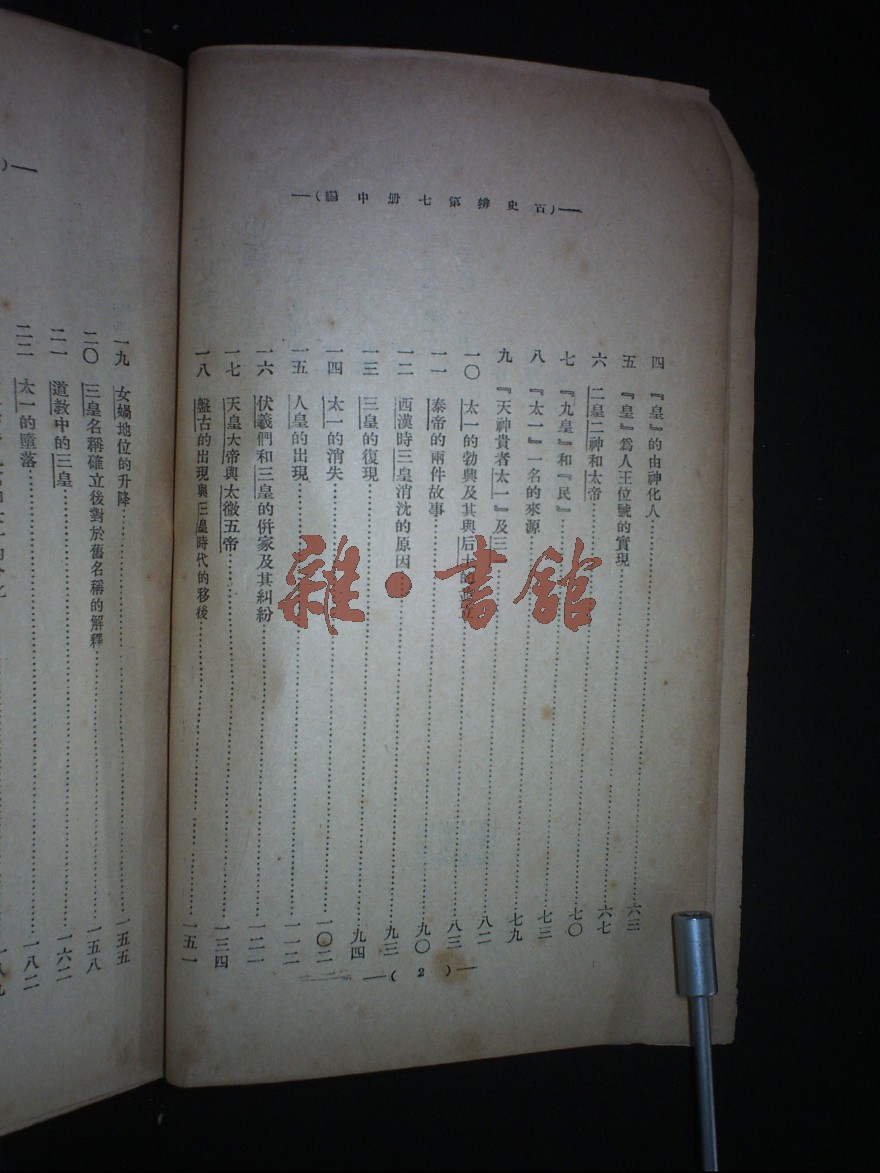 —(古史辨第七册中編)—
四 『皇』的由神化人……六三
五 『皇』爲人王位號的實現……六七
六 二皇二神和太帝……七〇
七 『九皇』和『民』……七三
八 『太一』一名的來源……七九
九 『天神貴者太一』及三……八二
一〇 太一的勃興及其與后土的……八三
一一 泰帝的兩件故事……九〇
一二 西漢時三皇消沈的原因……九三
一三 三皇的復現……九四
一四 太一的消失……一〇二
一五 人皇的出現……一一二
一六 伏羲們和三皇的併家及其糾紛……一二一
一七 天皇大帝與太微五帝……一三四
一八 盤古的出現與三皇時代的移後……一五一
—( 2 )—
一九 女媧地位的升降……一五五
二〇 三皇名稱確立後對於舊名稱的解釋……一五八
二一 道教中的三皇……一六二
二二 太一的墮落……一八二
雜·書館